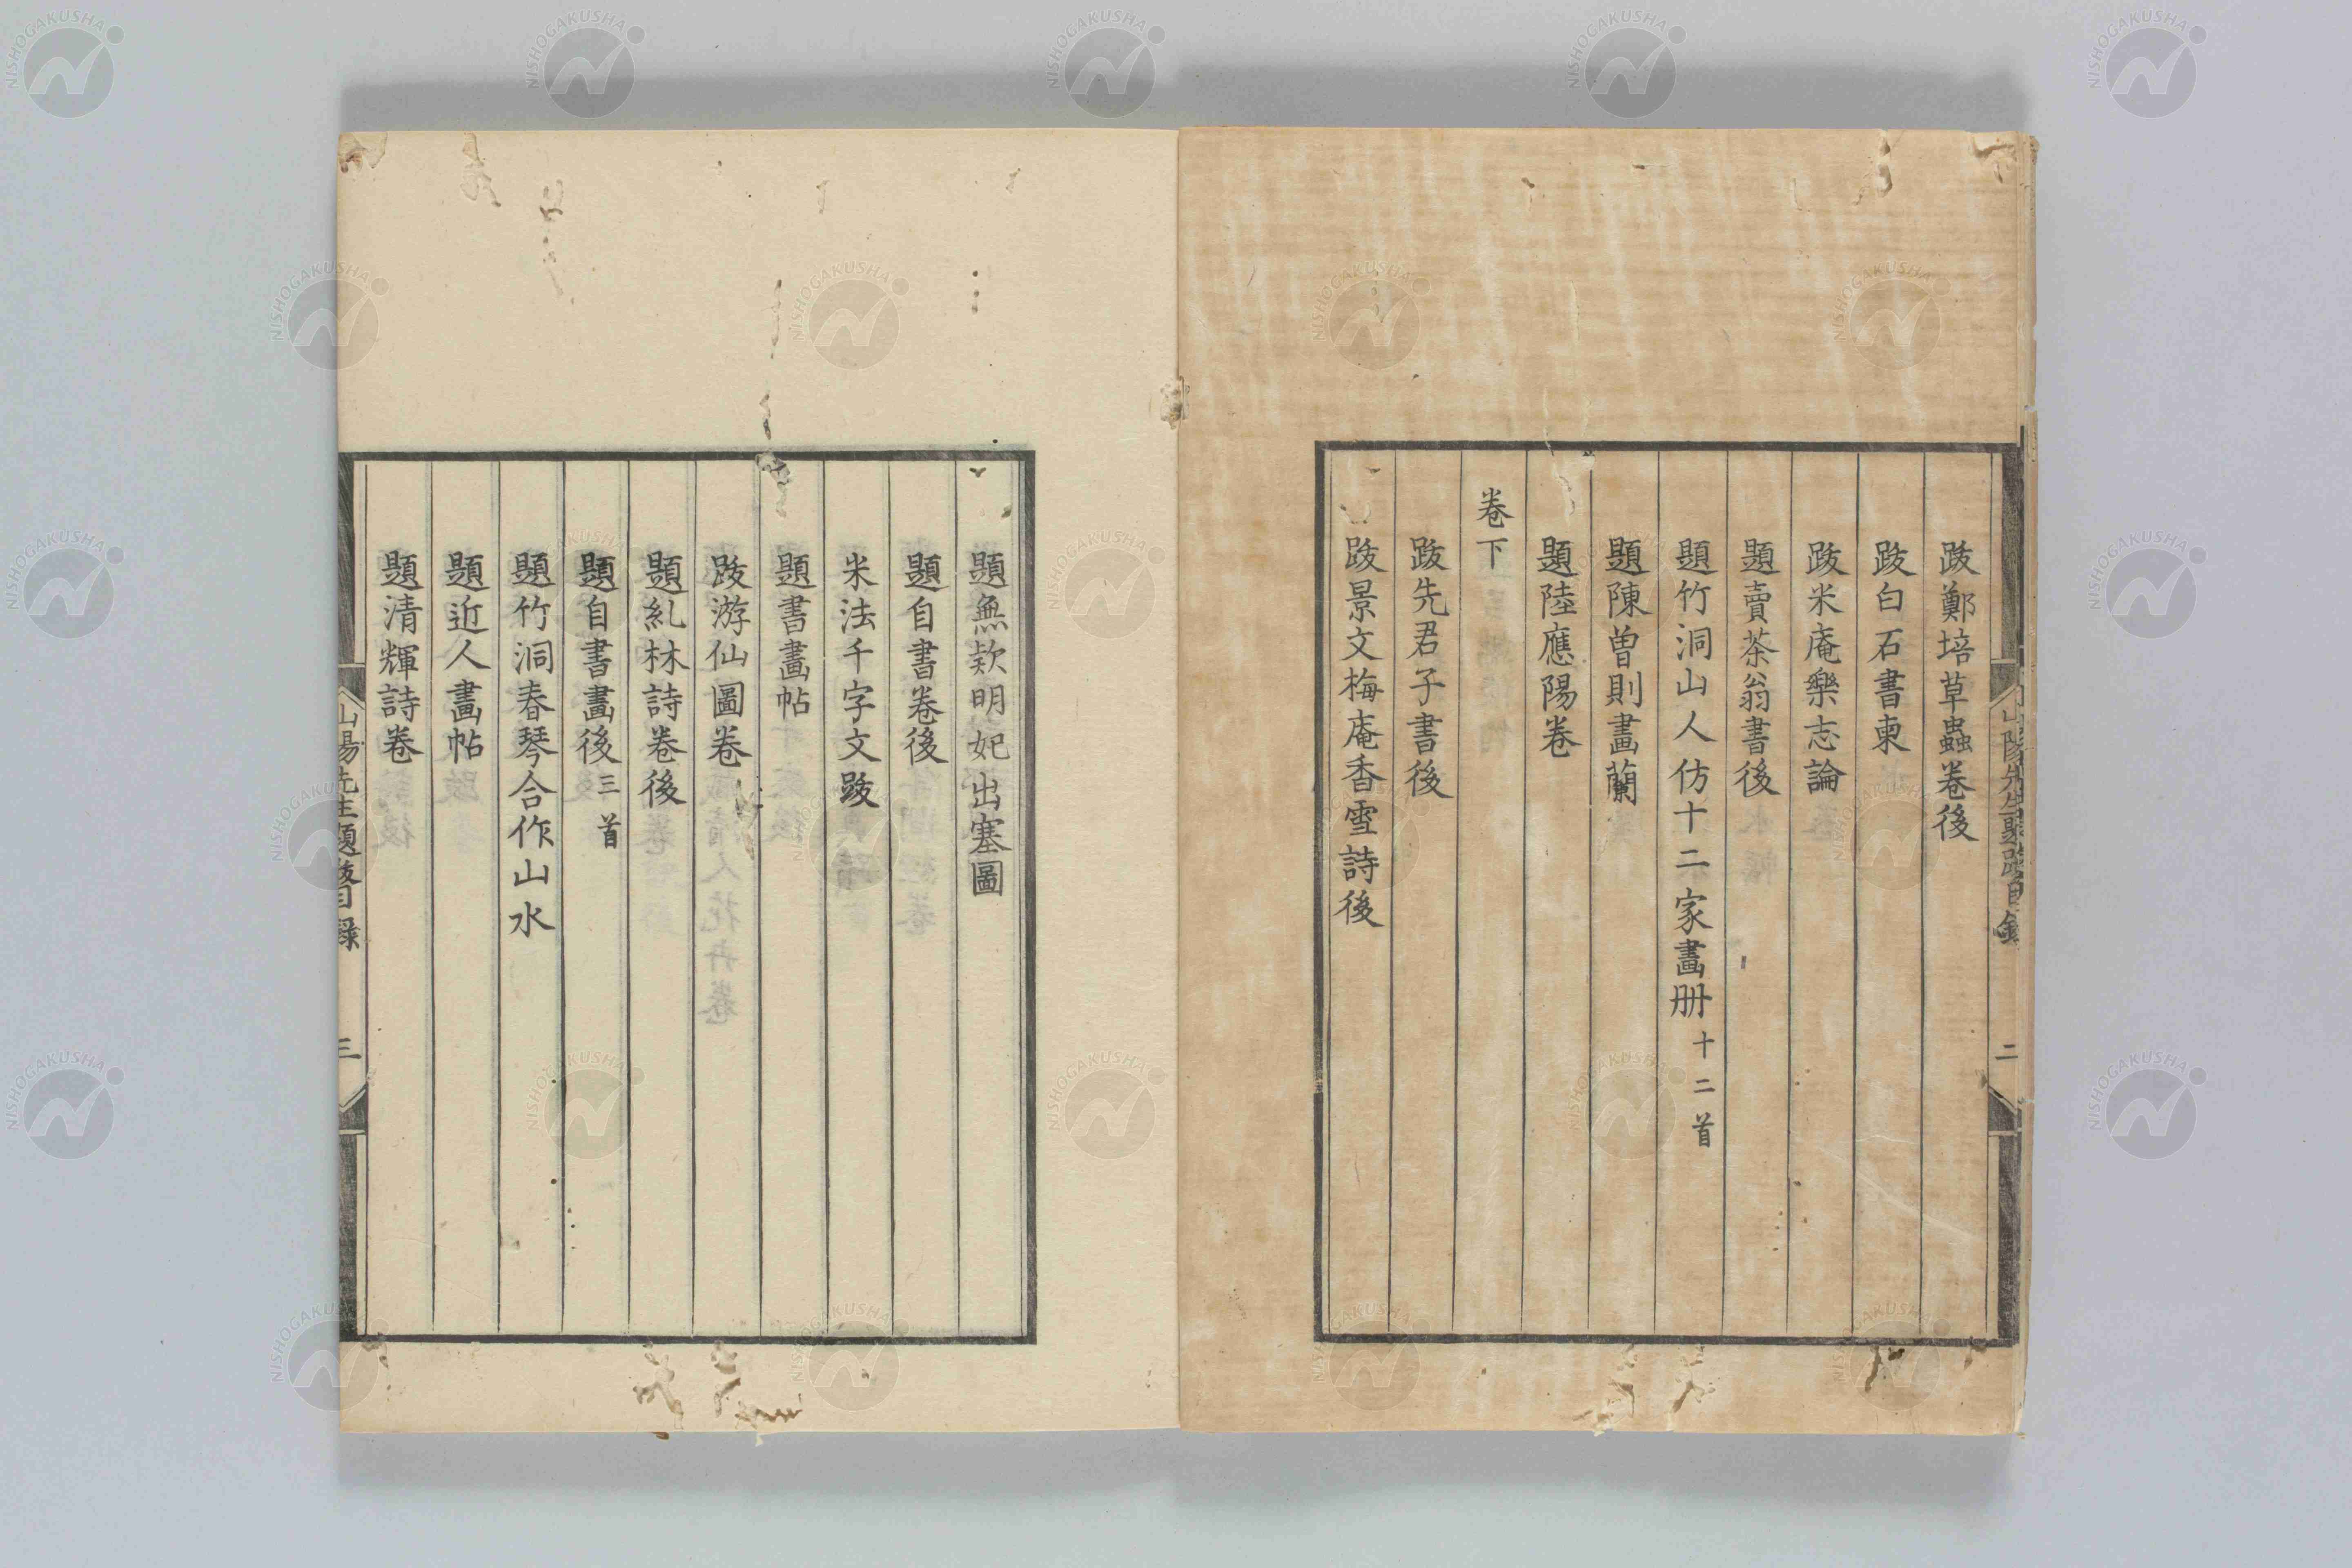 跋鄭培草蟲卷後
跋白石書柬
跋米庵樂志論
題賣茶翁書後
題竹洞山人仿十二家畫册十二首
題陳曽則畫蘭
題陸應陽卷
卷下
跋先君子書後
跋景文梅庵香雪詩後
二
題無欵明妃出塞圖
題自書卷後
米法千字文跋
題書畫帖
跋游仙圖卷
題糺林詩卷後
題自書畫後三首
題竹洞春琴合作山水
題近人畫帖
題清輝詩卷
山陽先生題跋目錄
三
NISHOGAKUSHA